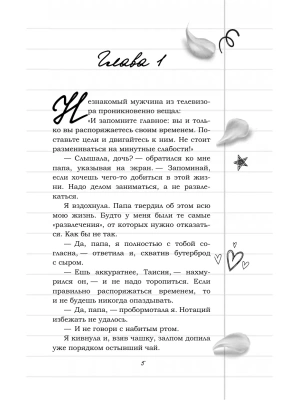 Глава 1
Незнакомый мужчина из телевизо-
ра проникновенно вещал:
«И запомните главное: вы и толь-
ко вы распоряжаетесь своим временем. По-
ставьте цели и двигайтесь к ним. Не стоит
размениваться на минутные слабости!»
— Слышала, дочь? — обратился ко мне
папа, указывая на экран. — Запоминай,
если хочешь чего-то добиться в этой жиз-
ни. Надо делом заниматься, а не развле-
каться.
Я вздохнула. Папа твердил об этом всю
мою жизнь. Будто у меня были те самые
«развлечения», от которых нужно отказать-
ся. Как бы не так.
— Да, папа, я полностью с тобой со-
гласна, — ответила я, схватив бутерброд
с сыром.
— Ешь аккуратнее, Таисия, — нахму-
рился он, — и не надо торопиться. Если
правильно распоряжаться временем, то
и не будешь никогда опаздывать.
— Да, папа, — пробормотала я. Нотаций
избежать не удалось.
— И не говори с набитым ртом.
Я кивнула и, взяв чашку, залпом допила
уже порядком остывший чай.
5